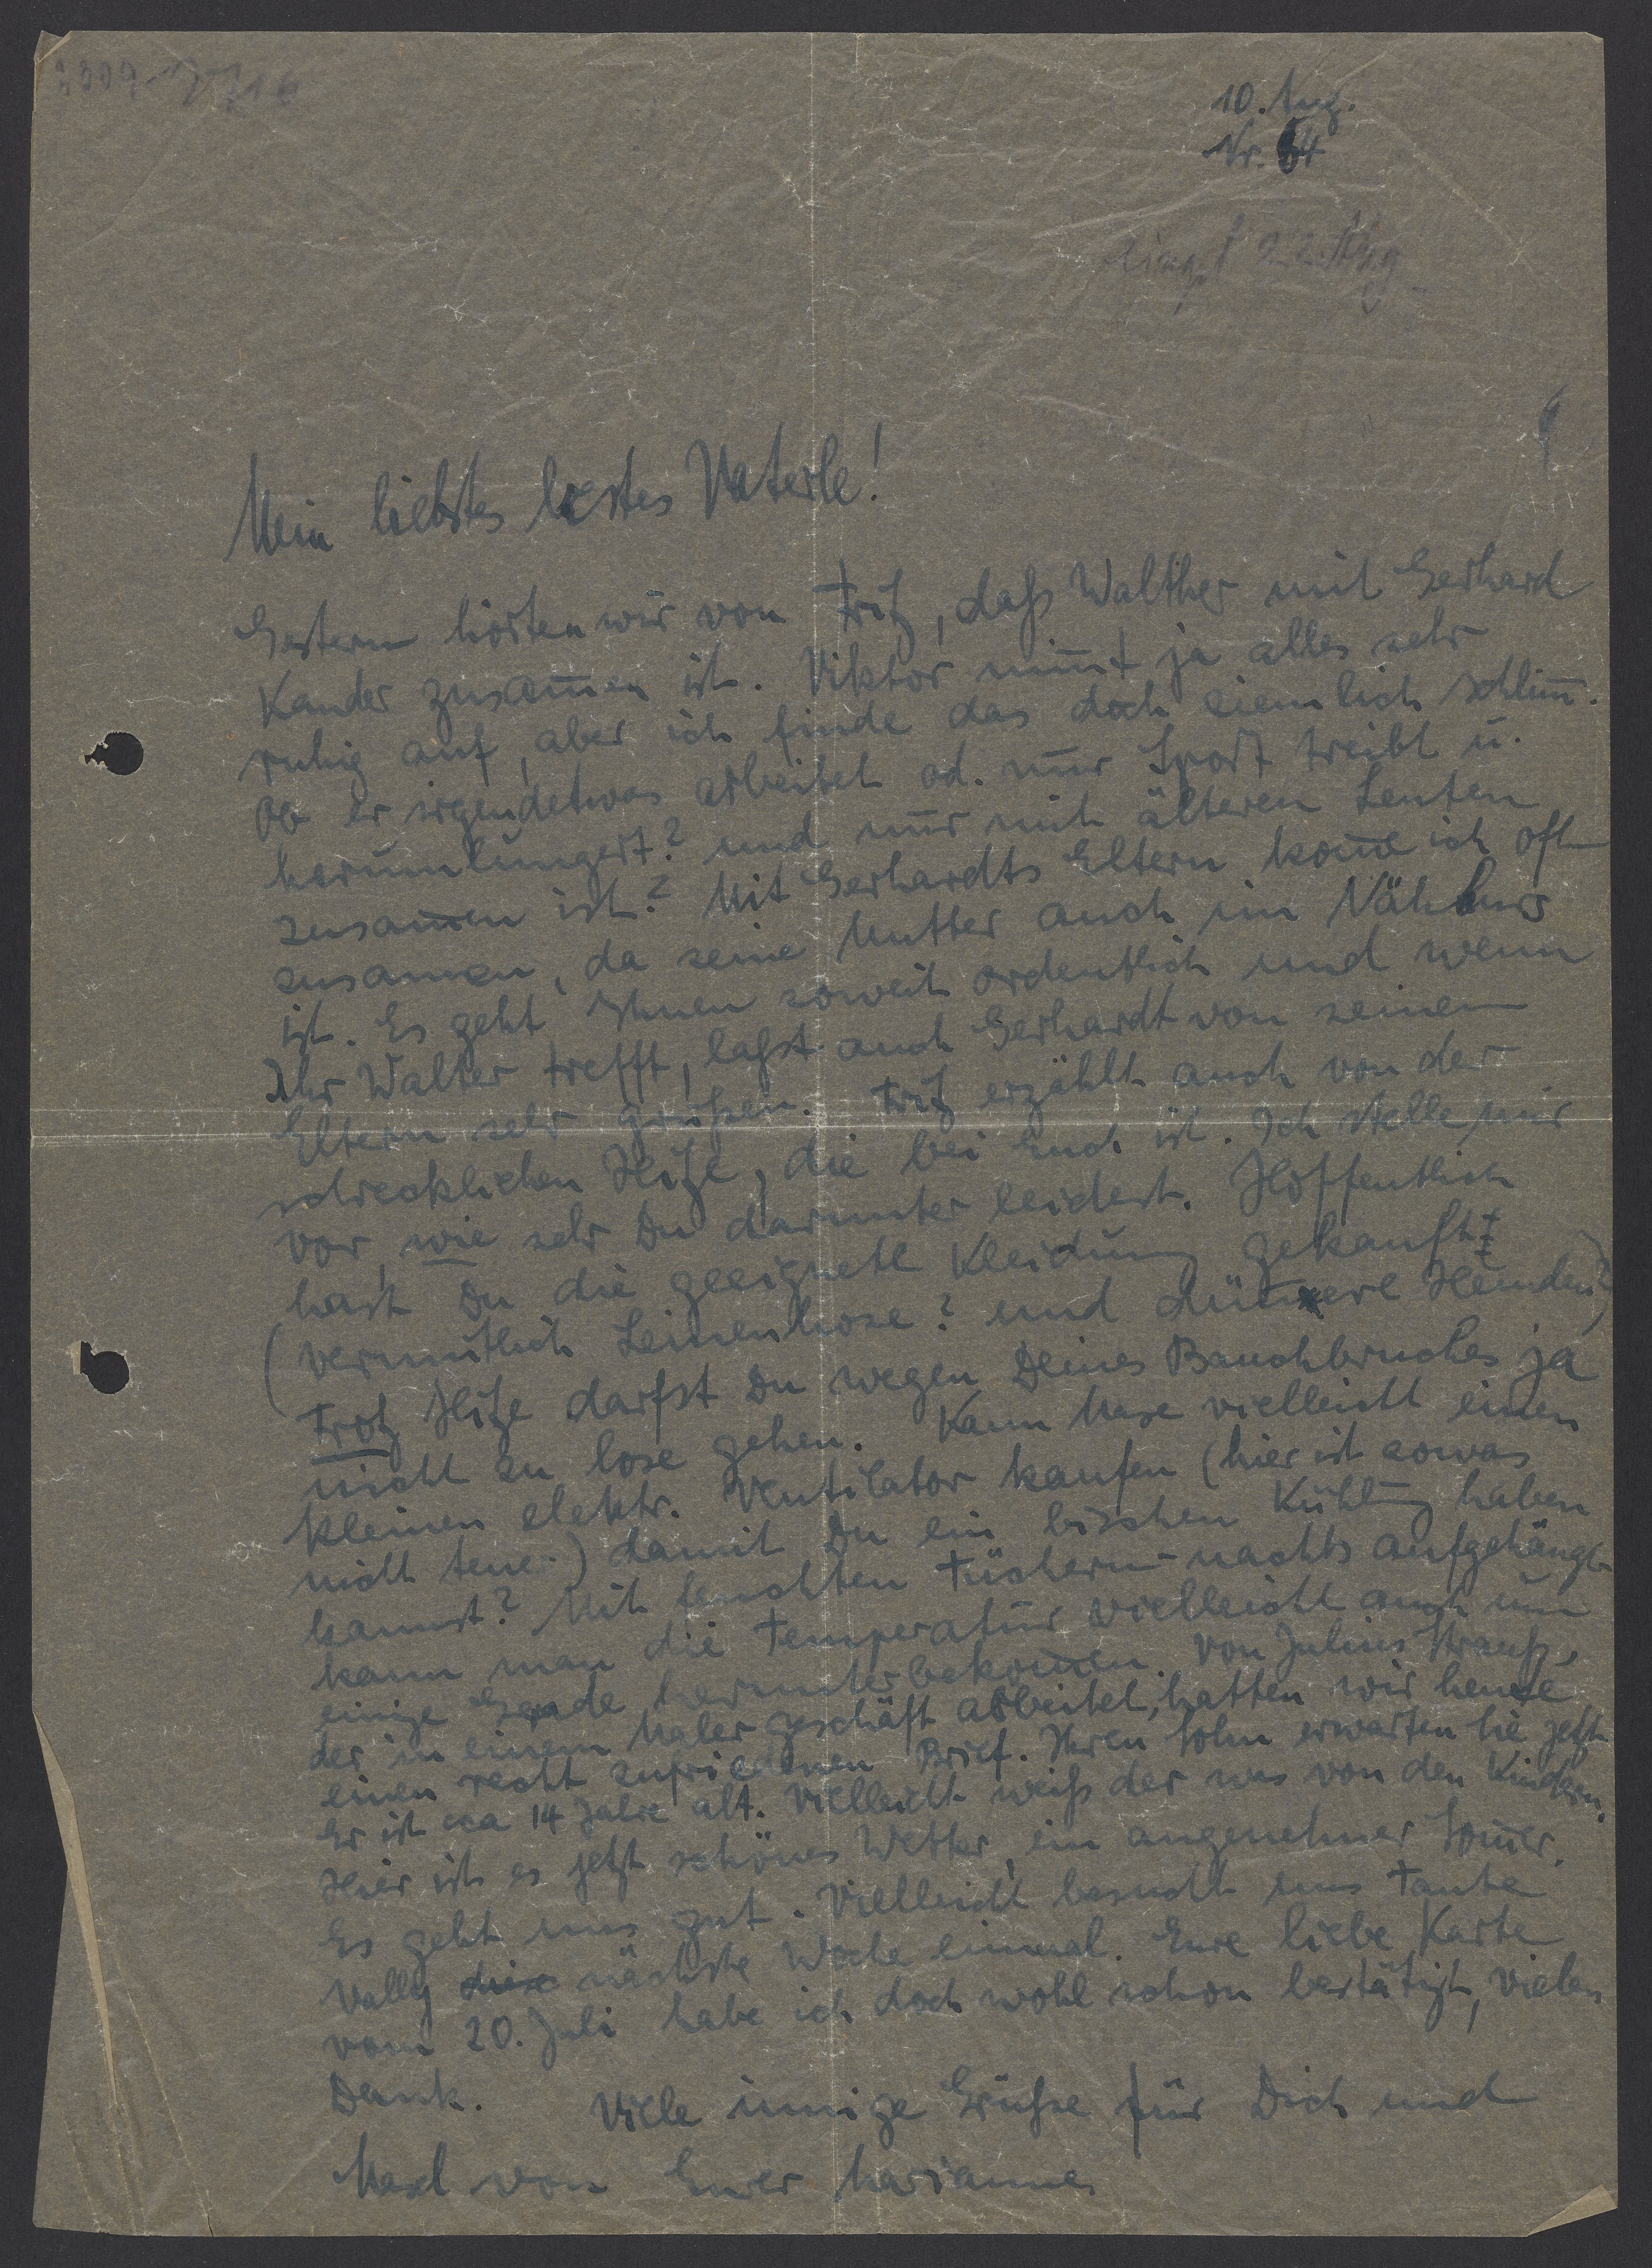 10. Aug.
Nr. 64
eingt 22. Aug
Mein liebstes bestes Vaterle!
Gestern hörten wir von Fritz, daß Walther mit Gerhard
Kander zusam̅en ist. Viktor nim̅t ja alles sehr
ruhig auf, aber ich finde das doch ziemlich schlim̅.
Ob er irgendetwas arbeitet od. nur Sport treibt u.
herumlungert? und nur mit älteren Leuten
zusam̅en ist? Mit Gerhardts Eltern kom̅e ich oft
zusamen, da seine Mutter auch im Nähkurs
ist. Es geht Ihnen soweit ordentlich und wenn
Ihr Walter trefft, laßt auch Gerhardt von seinen
Eltern sehr grüßen. Fritz erzählt auch von der
schrecklichen Hitze, die bei Euch ist. Ich stelle mir
vor, wie sehr Du darunter leidest. Hoffentlich
hast Du die geeignete Kleidung gekauft?
(vermutlich Leinenhose? und dün̅ere Hemden?)
Trotz Hitze darfst Du wegen Deines Bauchbruches ja
nicht zu lose gehen. Kann Maxe vielleicht einen
kleinen elektr. Ventilator kaufen (hier ist sowas
nicht teuer) damit Du ein bischen Kühlung haben
kannst? Mit feuchten Tüchern nachts aufgehängt
kann man die Temperatur vielleicht auch um
einige Grade herunterbekom̅en. Von Julius Strauß,
der in einem Malergeschäft arbeitet, hatten wir heute
einen recht zufriedenen Brief. Ihren Sohn erwarten Sie jetzt.
Er ist cca 14 Jahre alt. Vielleicht weiß der was von den Kindern.
Hier ist es jetzt schönes Wetter, ein angenehmer Som̅er.
Es geht uns gut. Vielleicht besucht uns Tante
Vally diese nächste Woche einmal. Eure liebe Karte
vom 20. Juli habe ich doch wohl schon bestätigt, vielen
Dank. Viele innige Grüße für Dich und
Maxl von Eurer Marianne